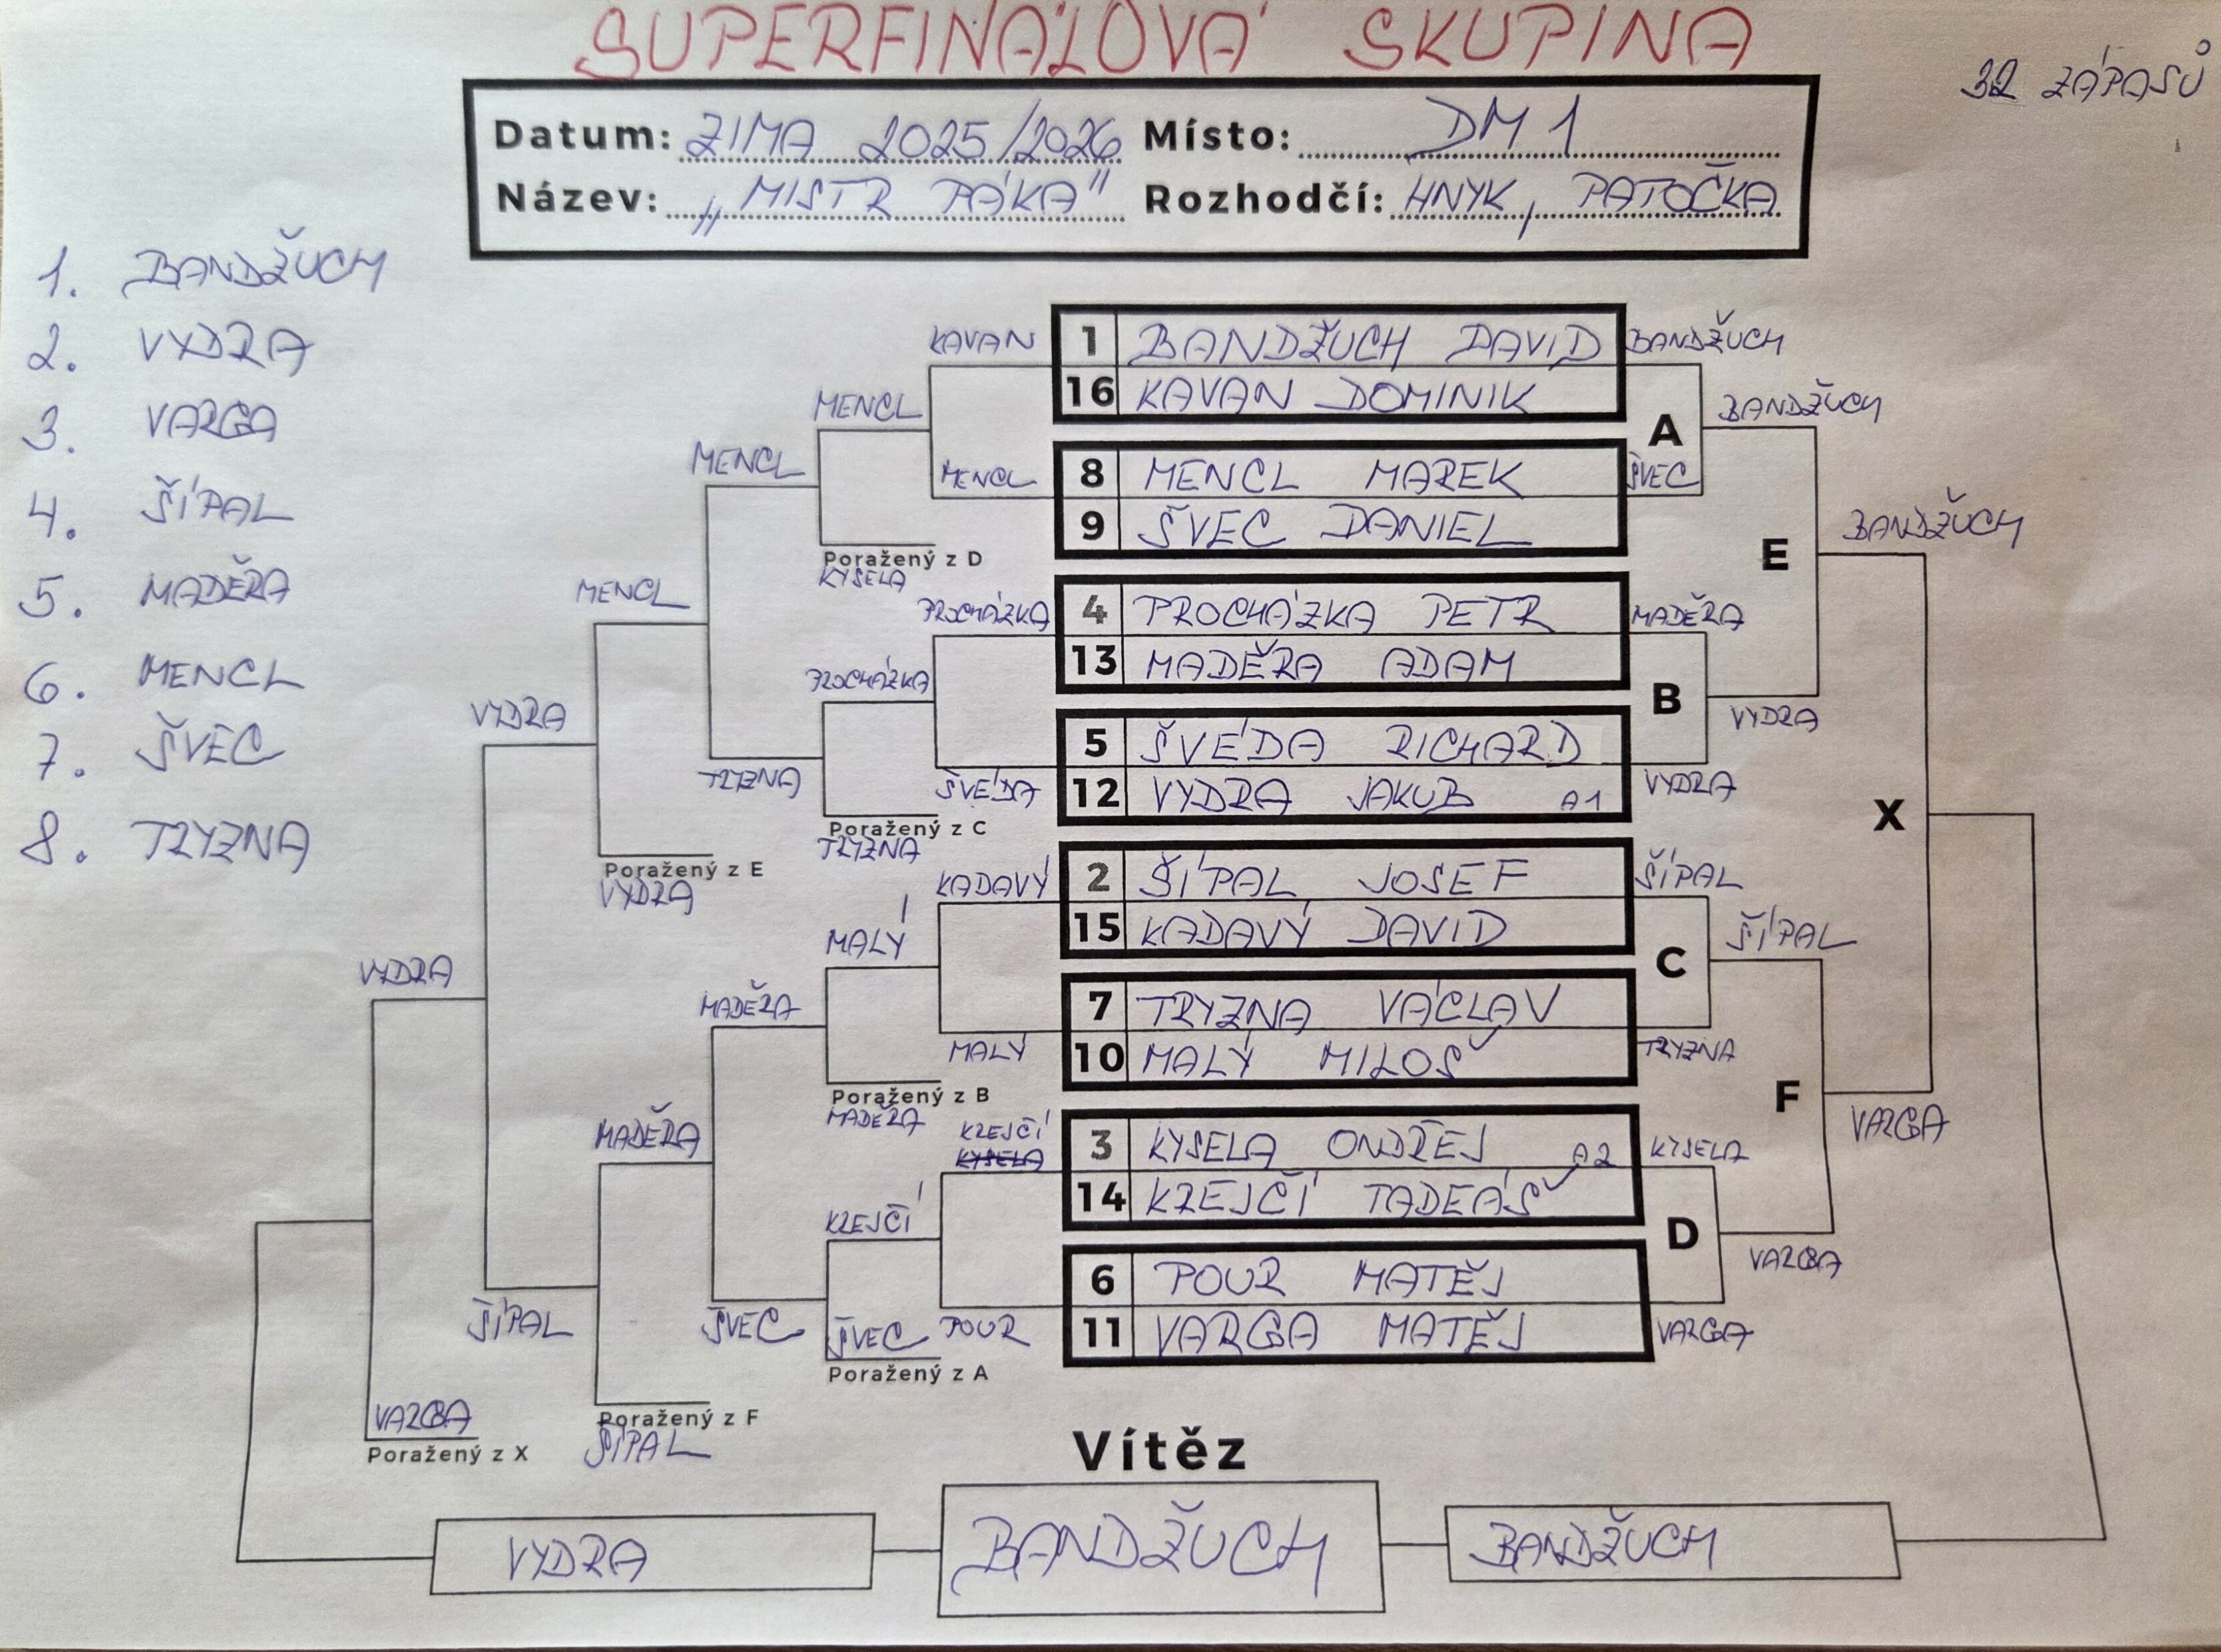 SUPERFINÁLOVÁ SKUPINA
32 ZÁPASŮ
Datum: ZIMA 2025/2026 Místo: DM 1
Název: „MISTR PÁKA" Rozhodčí: HNYK, PATOČKA
1. BANDŽUCH
2. VYDRA
3. VARGA
4. ŠÍPAL
5. MADĚRA
6. MENCL
7. ŠVEC
8. TRYZNA
1 BANDŽUCH DAVID
16 KAVAN DOMINIK
8 MENCL MAREK
9 ŠVEC DANIEL
4 PROCHÁZKA PETR
13 MADĚRA ADAM
5 ŠVÉDA RICHARD
12 VYDRA JAKUB A1
2 ŠÍPAL JOSEF
15 KADAVÝ DAVID
7 TRYZNA VÁCLAV
10 MALÝ MILOŠ
3 KYSELA ONDŘEJ A2
14 KREJČÍ TADEÁŠ
6 POUR MATĚJ
11 VARGA MATĚJ
BANDŽUCH
A
ŠVEC
MADĚRA
B
VYDRA
ŠÍPAL
C
TRYZNA
KYSELA
D
VARGA
BANDŽUCH
E
VYDRA
ŠÍPAL
F
VARGA
BANDŽUCH
X
VARGA
KAVAN
MENCL
PROCHÁZKA
ŠVÉDA
KADAVÝ
MALÝ
KREJČÍ
KYSELA
POUR
MENCL
Poražený z D
KYSELA
PROCHÁZKA
Poražený z C
TRYZNA
MALÝ
Poražený z B
MADĚRA
KREJČÍ
ŠVEC
Poražený z A
MENCL
TRYZNA
MADĚRA
ŠVEC
MENCL
Poražený z E
VYDRA
MADĚRA
Poražený z F
ŠÍPAL
VYDRA
ŠÍPAL
VYDRA
VARGA
Poražený z X
Vítěz
VYDRA
BANDŽUCH
BANDŽUCH